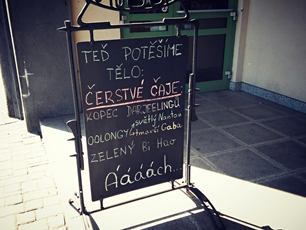 TEĎ POTĚŠÍME
TĚLO:
ČERSTVÉ ČAJE:
KOPEC DARJEELINGU
světlý Nantou
OOLONGY
tmavší Gaba
ZELENÝ Bi Hao
Áááách...